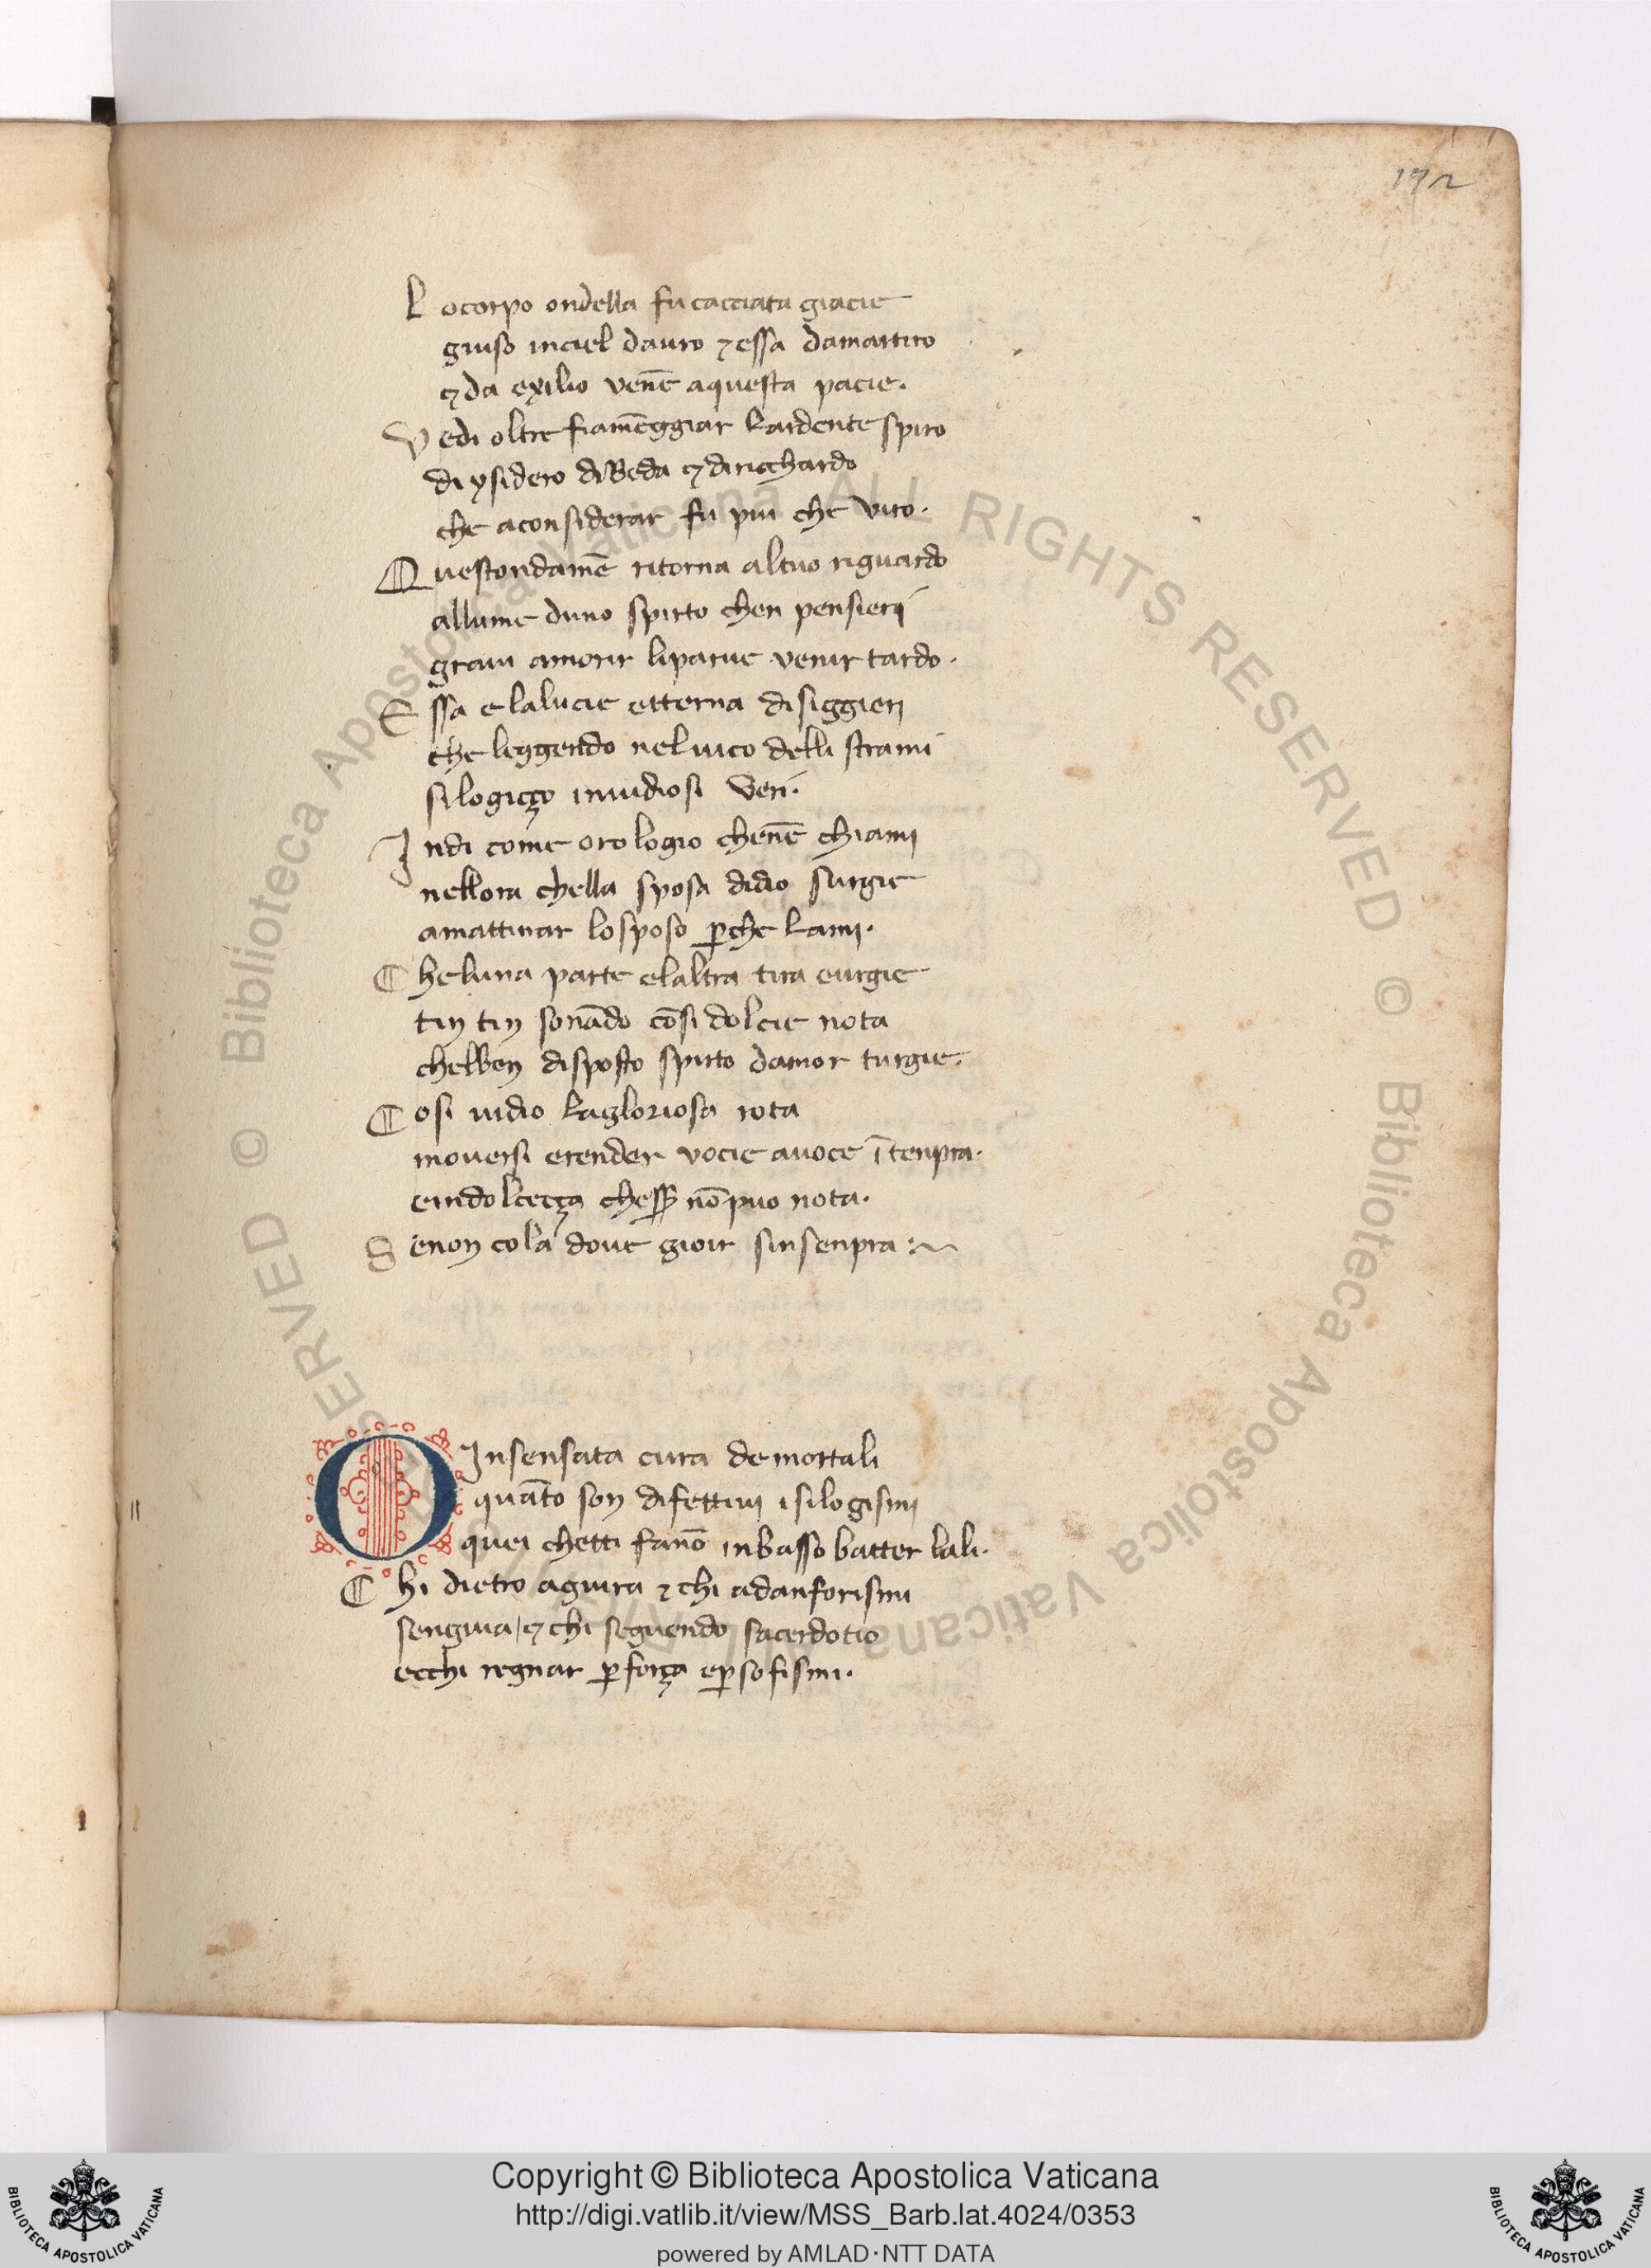 172
L ocorpo ondella fu cacciata giacie
giuso inciel dauro ⁊ essa damartiro
⁊ da exilio venē aquesta pacie.
V edi oltre fiamēggiar lardente spiro
di ysidero di Beda ⁊ diricchardo
che aconsiderar fu piu che viro.
Q uestondamē ritorna altuo riguardo
allume duno spirto chen pensieri
graui amorir liparue venir tardo.
E ssa e lalucie etterna disiggieri
che leggendo neluico delli strami
silogicço inuidiosi veri.
I ndi come orologio chenē chiami
nellora chella sposa didio surgie
amattinar losposo ꝑche lami.
C heluna parte elaltra tira eurgie
tin tin sonādo cōsi dolcie nota
chelben disposto spirto damor turgie.
C osi uidio lagloriosa rota
mouersi erender vocie auoce ī tenpra.
eindolcecça chesẜ nō puo nota.
S enon cola doue gioir sinsenpra :~
O Insensata cura de mortali
quāto son difettiui i silogismi
quei chetti fanō inbasso batter lali.
C hi dietro agiura ⁊ chi adanforismi
sengiua / ⁊ chi seguendo sacerdotio
ecchi regnar ꝑ força eꝑ sofismi.
© Biblioteca Apostolica Vaticana ALL RIGHTS RESERVED © Biblioteca Apostolica Vaticana ALL RIGHTS RESERVED
Copyright © Biblioteca Apostolica Vaticana
http://digi.vatlib.it/view/MSS_Barb.lat.4024/0353
powered by AMLAD·NTT DATA
BIBLIOTECA APOSTOLICA VATICANA
BIBLIOTECA APOSTOLICA VATICANA